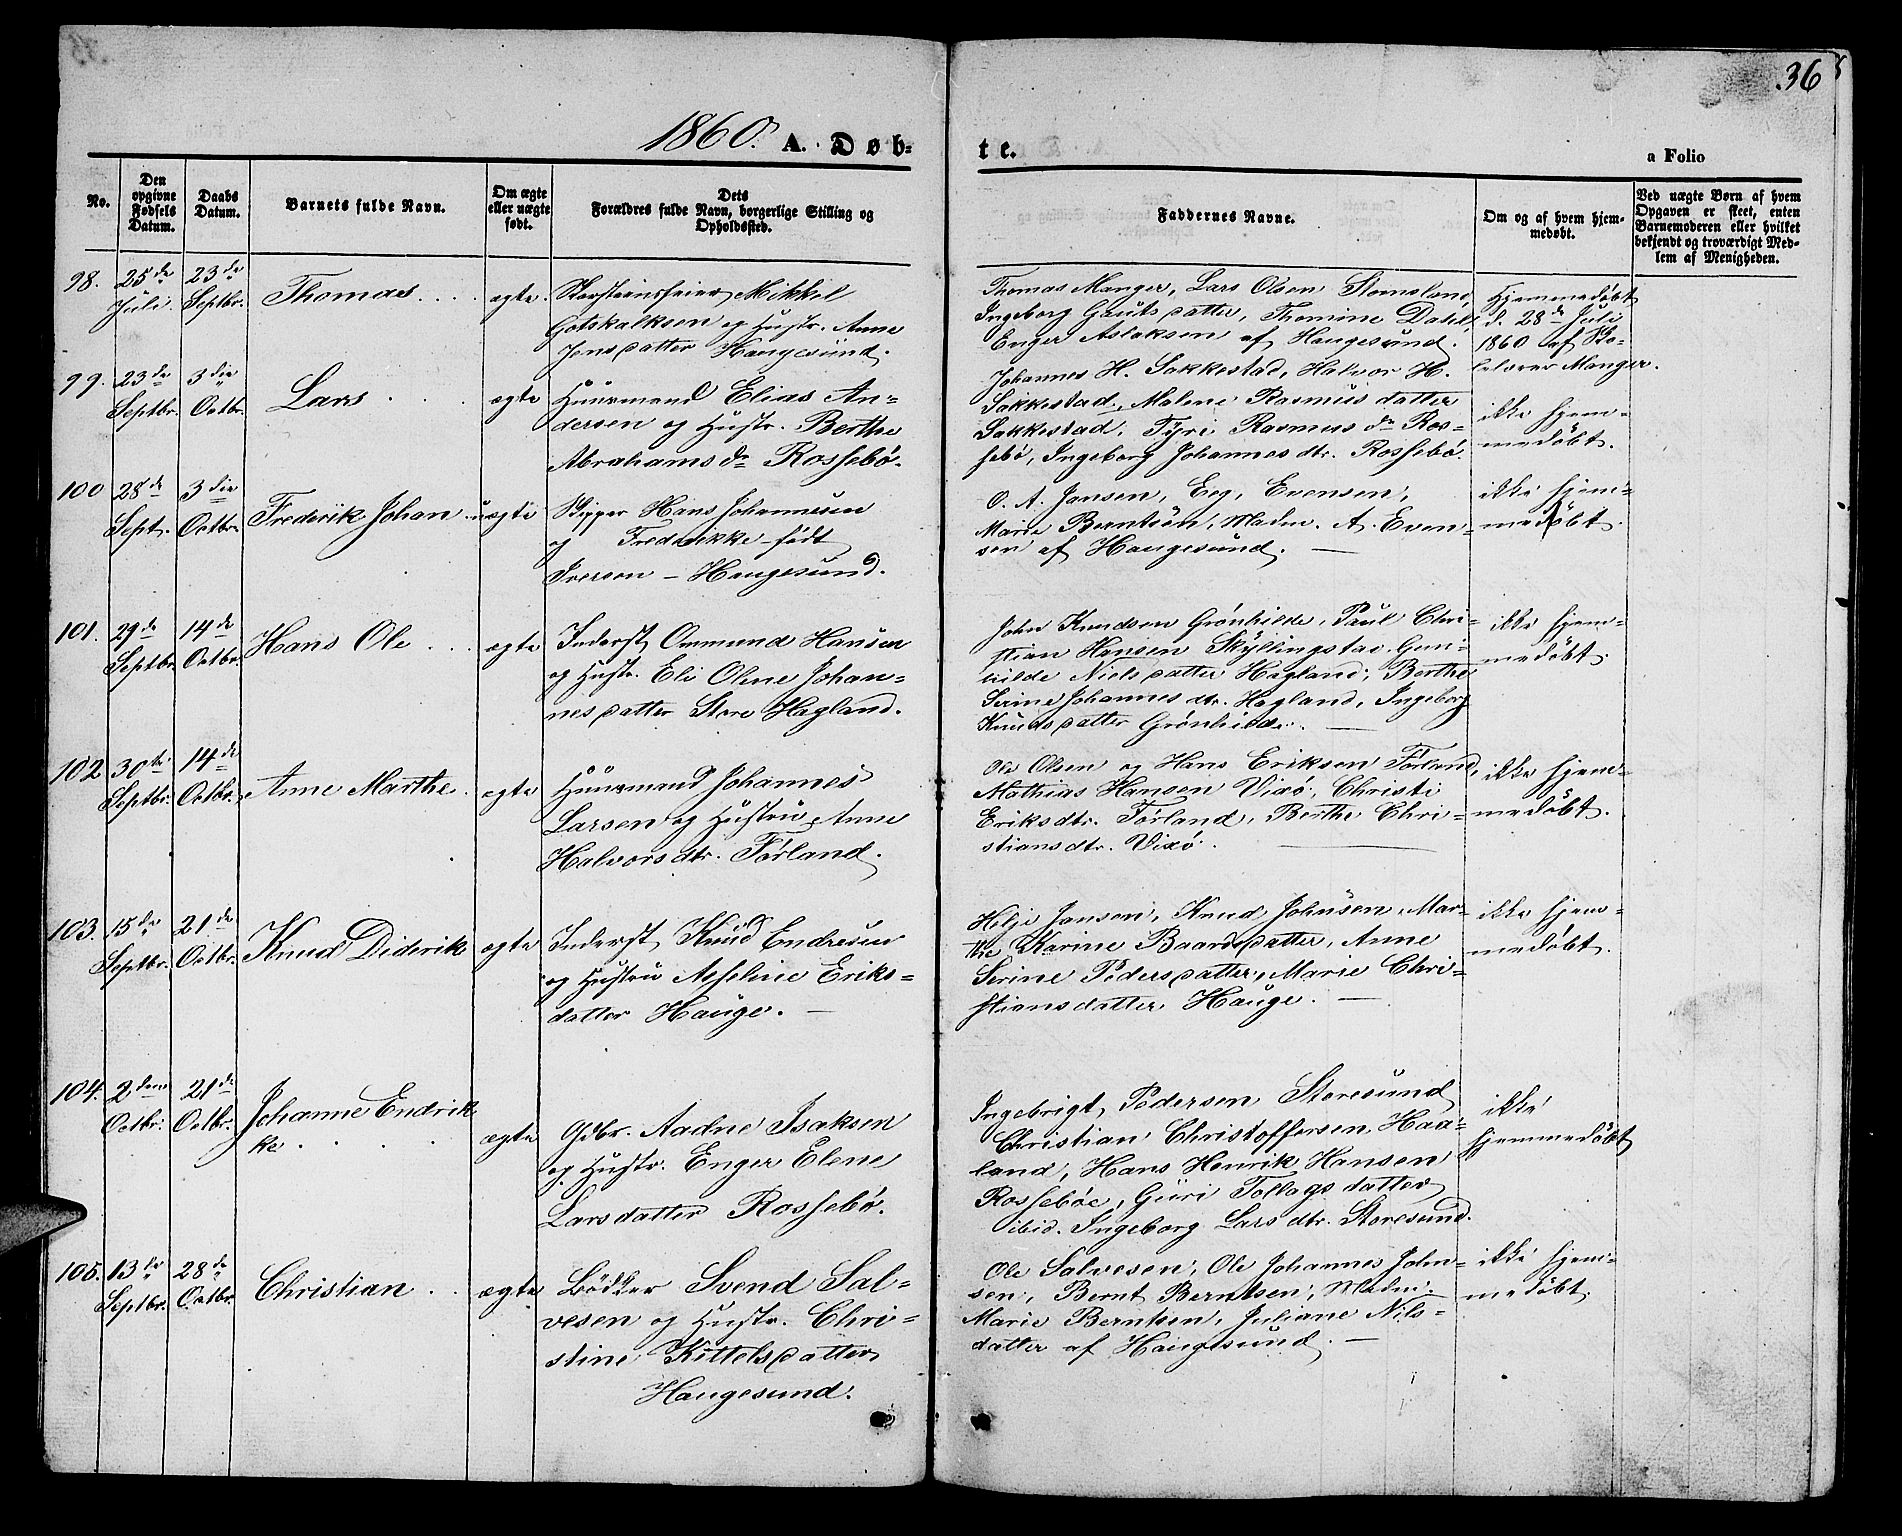 36
1860. A. Døb-
te.
a Folio
No.
Den opgivne Fødsels Datum.
Daabs Datum.
Barnets fulde Navn.
Om ægte eller uægte født.
Dets Forældres fulde Navn, borgerlige Stilling og Opholdssted.
Faddernes Navne.
Om og af hvem hjem-medøbt.
Ved uægte Børn af hvem Opgaven er skeet, enten Barnemoderen eller hvilket bekjendt og troværdigt Med-lem af Menigheden.
98.
25de Juli.
23de Septbr.
Thomas
ægte
Skorsteinsfeier Mikkel
Gotskalksen og Hustr. Anne
Jensdatter Haugesund.
Thomas Manger, Lars Olsen
Ingeborg Gautsdatter, Thomine
Enger Aslaksen af Haugesund.
Hjemmedøbt
d. 28de Juli
1860 af Sko-
lelærer Manger.
99.
23de Septbr.
3die Octbr.
Lars
ægte
Huusmand Elias An-
dersen og Hustr. Berthe
Abrahamsdr Rossebø.
Johannes H. Sakkestad, Halvor H.
Sakkestad, Malene Rasmusdatter
Sakkestad, Tyri Rasmusdr Ros-
sebø, Ingeborg Johannesdtr. Rossebø.
ikke hjem-
medøbt.
100
28de Sept.
3die Octbr.
Frederik Johan
uægte
Skipper Hans Johannesen
og Frederikke født
Iversen - Haugesund.
O. A. Jansen, Eeg, Evensen,
Marie Berntsen, Madm. A. Even-
sen af Haugesund.
ikke hjem-
medøbt.
101.
29de Septbr.
14de Octbr.
Hans Ole
ægte
Inderst Ommund Hansen
og Hustr. Eli Olene Johan-
nesdatter Store Hagland.
John Knudsen Grønhilde, Paul Chri-
stian Hansen Skyllingstad, Gun-
hilde Nielsdatter Hagland, Berthe
Serine Johannesdtr. Hagland, Ingeborg
Knudsdatter Grønhilde.
ikke hjem-
medøbt.
102
30te Septbr.
14de Octbr.
Anne Marthe
ægte
Huusmand Johannes
Larsen og Hustru Anne
Halvorsdtr. Førland.
Ole Olsen og Hans Eriksen Førland,
Mathias Hansen Vixø, Christi
Eriksdtr. Førland, Berthe Chri-
stiansdtr. Vixø.
ikke hjem-
medøbt.
103.
15de Septbr.
21de Octbr.
Knud Diderik
ægte
Inderst Knud Endresen
og Hustru Asseline Eriks-
datter Hauge.
Helje Jansen, Knud Johnsen, Mar-
the Karine Baardsdatter, Anne
Serine Pedersdatter, Marie Chri-
stiansdatter Hauge.
ikke hjem-
medøbt.
104.
2den Octbr.
21de Octbr.
Johanne Endrik
ke
ægte
Gdbr. Aadne Isaksen
og Hustr. Enger Elene
Larsdatter Rossebø.
Ingebrigt Pedersen Storesund
Christian Christoffersen Haa-
land, Hans Henrik Hansen
Rossebøe, Guri Tollagsdatter
ibid. Ingeborg Larsdtr. Storesund.
ikke
hjemmedøbt
105.
13de Septbr.
28de Octbr.
Christian
ægte
Bødker Svend Sal-
vesen og Hustr. Chri-
stine Kittelsdatter
Haugesund.
Ole Salvesen, Ole Johannes John-
sen, Bernt Berntsen, Madm.
Marie Berntsen, Juliane Nils-
datter af Haugesund.
ikke hjem-
medøbt.